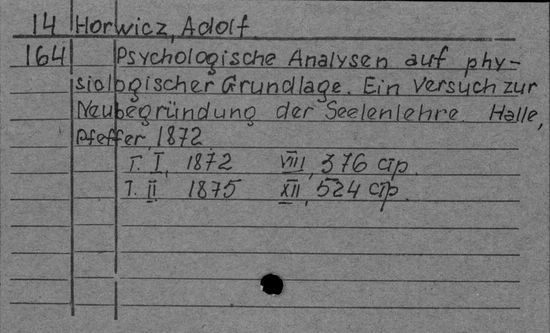 14 Horwicz, Adolf.
164 Psychologische Analysen auf phy-
siologischer Grundlage. Ein Versuch zur
Neubegründung der Seelenlehre. Halle,
Pfeffer, 1872
T. I, 1872 VIII, 376 стр.
T. II 1875 XII, 524 стр.